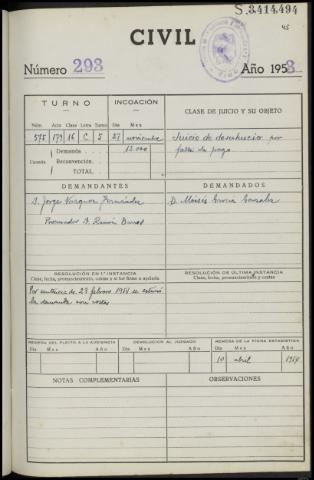 S.3.414.494
45
CIVIL
Número 293
Año 1953
TURNO
INCOACIÓN
CLASE DE JUICIO Y SU OBJETO
Núm. Año Clase Letra Cifra Día Mes
575 16 C 5 27 noviembre
Cuantía
Demanda 12.000
Reconvención
TOTAL
Juicio de desahucio por
falta de pago
DEMANDANTES
DEMANDADOS
D. Jorge Vázquez Fernández
Procurador D. Ramón
D. Moisés García González
RESOLUCIÓN EN 1.ª INSTANCIA
Clase, fecha, pronunciamiento, costas y si fué firme o apelada
RESOLUCIÓN DE ÚLTIMA INSTANCIA
Clase, fecha, pronunciamiento y costas
Por sentencia de 23 febrero 1954 se estimó
la demanda con costas
REMESA DEL PLEITO A LA AUDIENCIA
DEVOLUCIÓN AL JUZGADO
REMESA DE LA FICHA ESTADÍSTICA
Día Mes Año Día Mes Año Día Mes Año
10 abril 1954
NOTAS COMPLEMENTARIAS
OBSERVACIONES